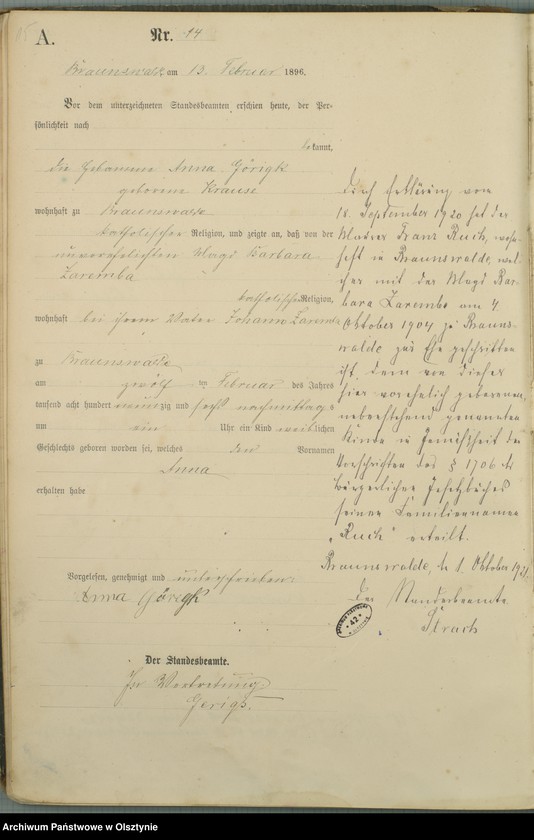 A.
Nr. 14
Braunswalde am 13. Februar 1896.
Vor dem unterzeichneten Standesbeamten erschien heute, der Per-
sönlichkeit nach
bekannt,
die Hebamme Anna Görigk
geborene Krause
wohnhaft zu Braunswalde
katholischer Religion, und zeigte an, daß von der
unverehelichten Magd Barbara
Zaremba
katholischer Religion,
wohnhaft bei ihrem Vater Johann Zaremba
zu Braunswalde
am zwölf ten Februar des Jahres
tausend acht hundert neun zig und sechs nachmittags
um ein Uhr ein Kind weiblichen
Geschlechts geboren worden sei, welches den Vornamen
Anna
erhalten habe
Vorgelesen, genehmigt und unterschrieben:
Anna Görigk
Der Standesbeamte.
In Vertretung.
Gerigk.
Durch Erklärung vom
18. September 1920 hat der
Maurer Franz Ruch, wohn-
haft in Braunswalde, wel-
cher mit der Magd Bar-
bara Zaremba am 4.
Oktober 1904 zu Brauns-
walde zur Ehe geschritten
ist, dem von dieser
hier vorehelich geborenen,
nebenstehend genannten
Kinde in Gemäßheit der
Vorschriften des § 1706 des
bürgerlichen Gesetzbuches
seinen Familiennamen
„Ruch" erteilt.
Braunswalde, d. 1. Oktober 1921.
Der Standesbeamte
42
Archiwum Państwowe w Olsztynie